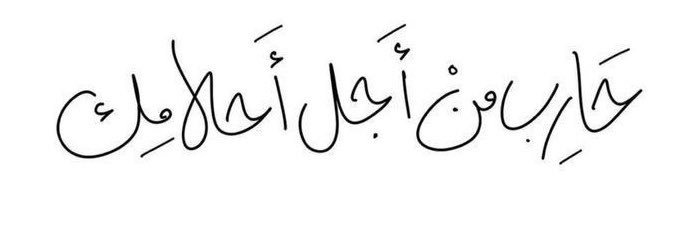 حَارِب من أَجل أَحلامِك